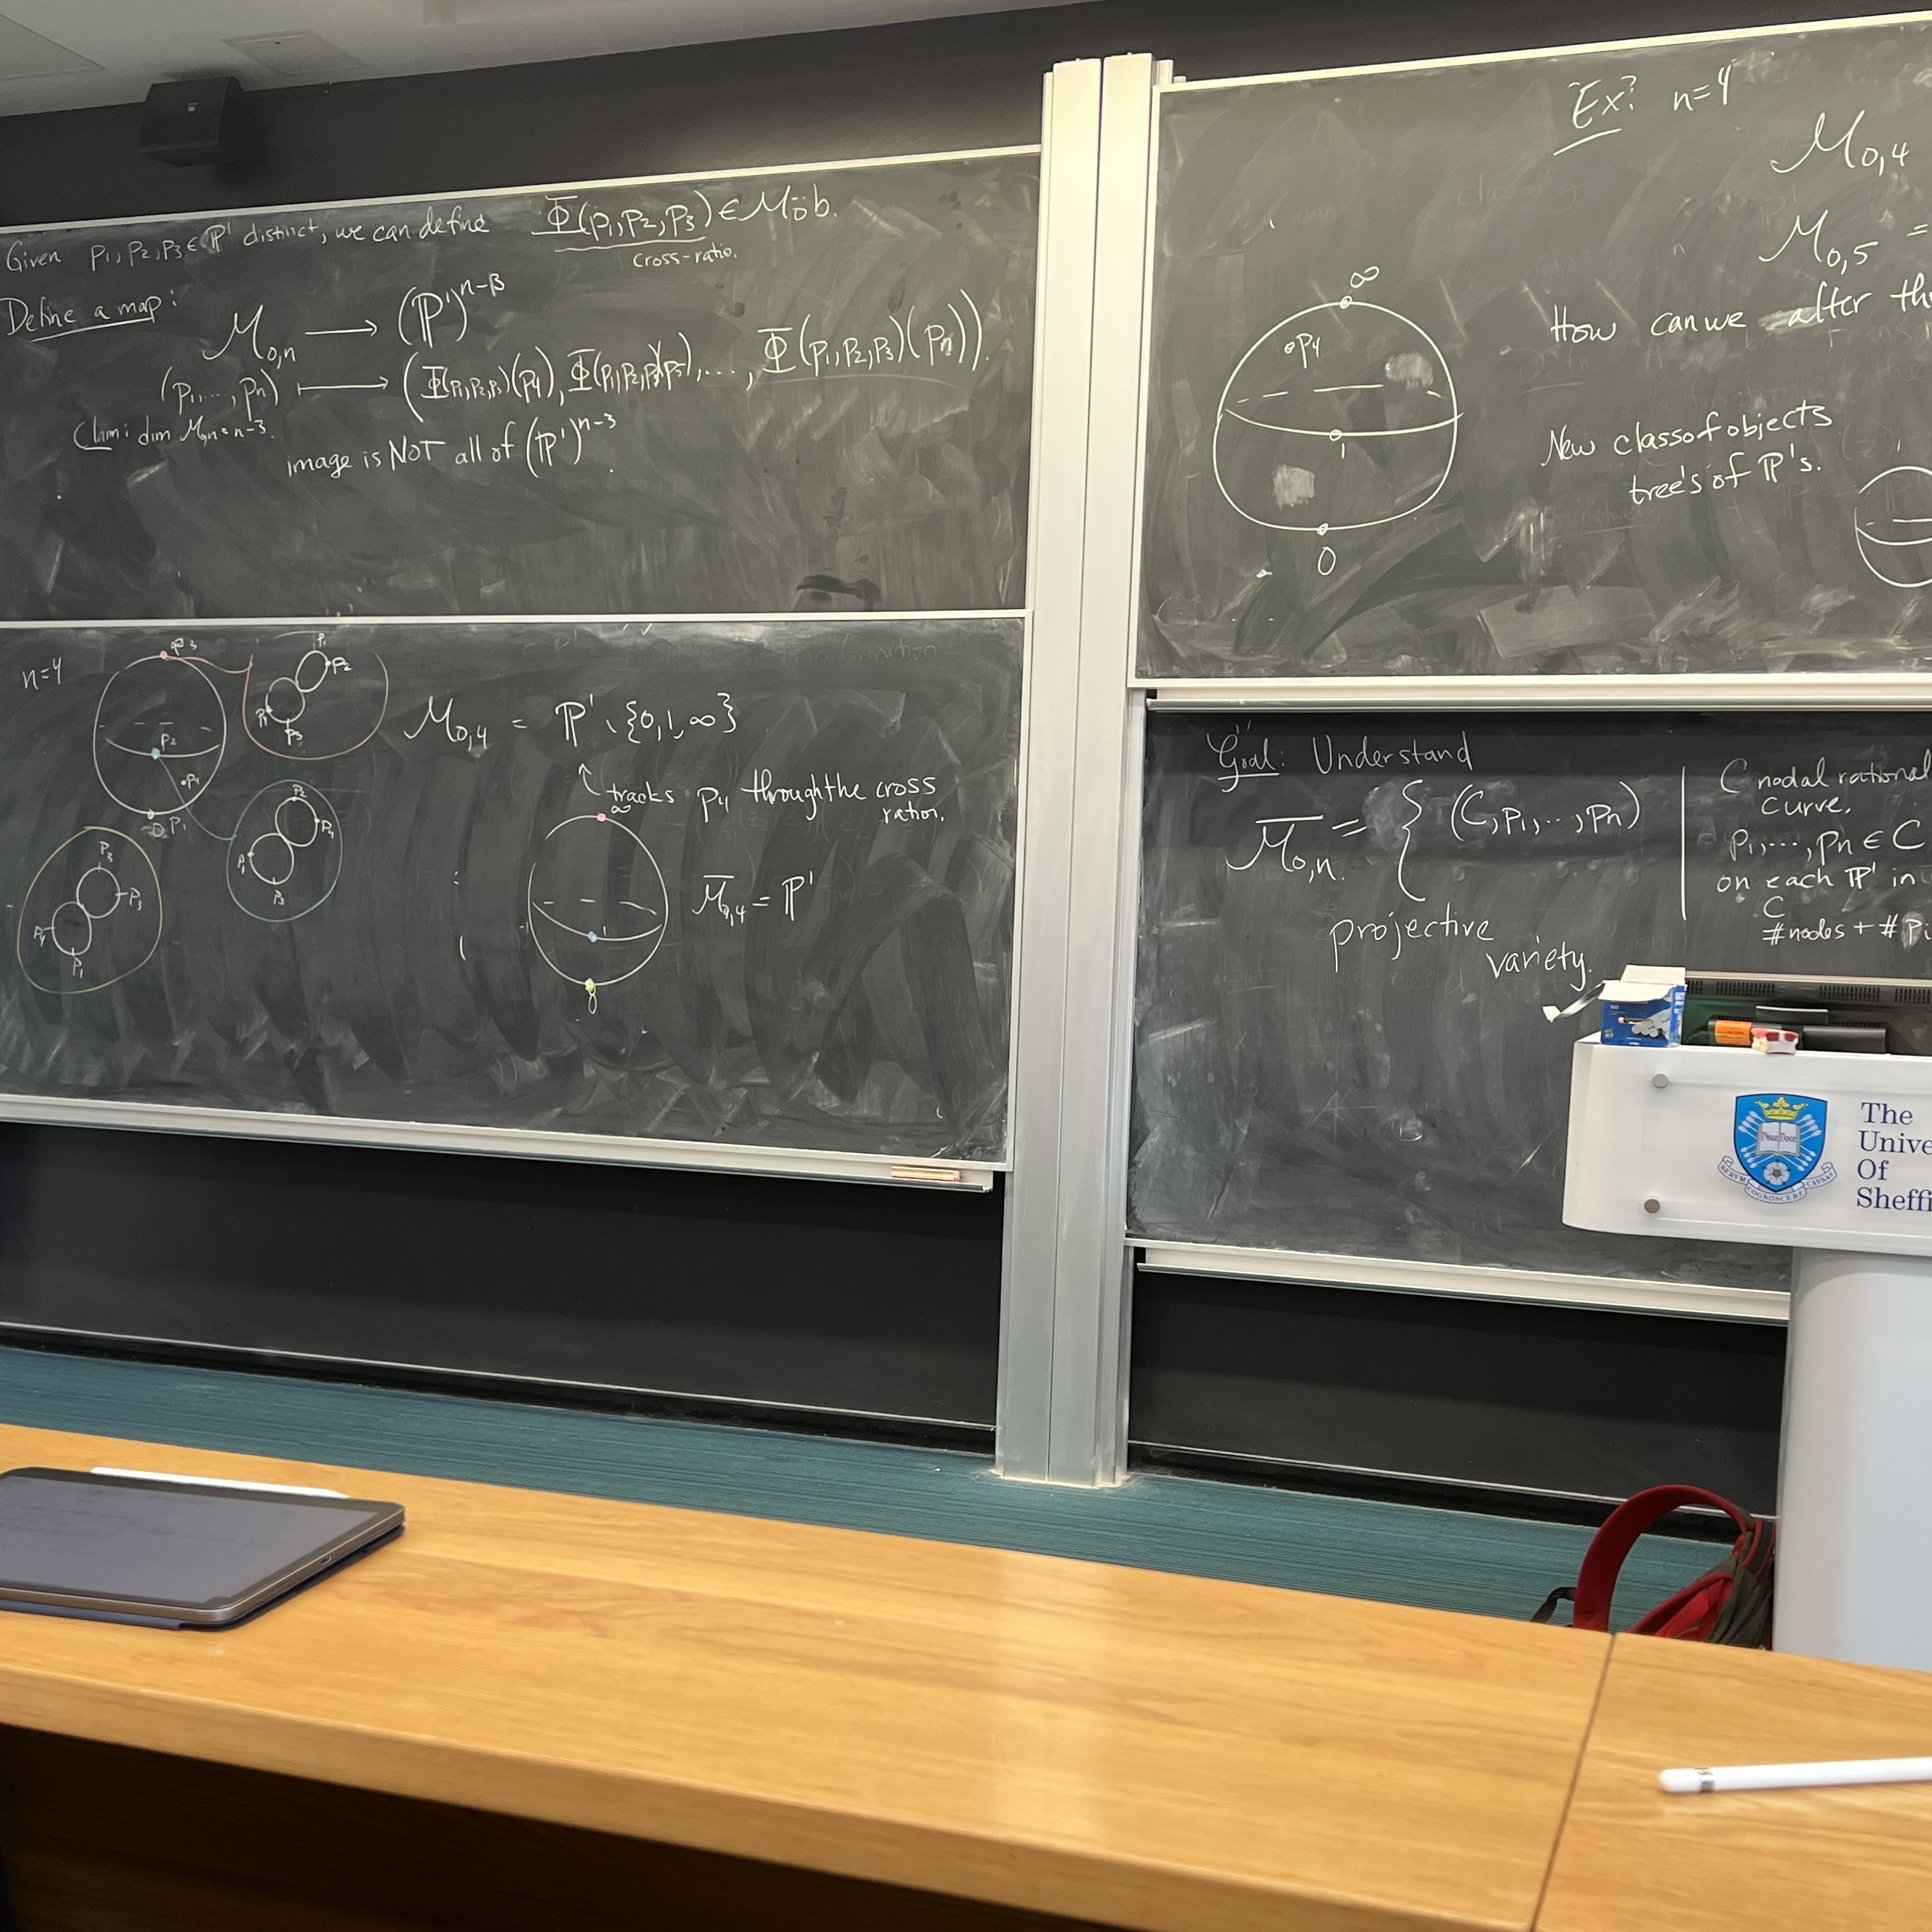 Given p₁, p₂, p₃ ∈ ℙ¹ distinct, we can define Φ(p₁, p₂, p₃) ∈ Möb.
cross-ratio.
Define a map:
M₀,ₙ ⟶ (ℙ¹)ⁿ⁻³
(p₁, ..., pₙ) ⟼ (Φ(p₁,p₂,p₃)(p₄), Φ(p₁,p₂,p₃)(p₅), ..., Φ(p₁,p₂,p₃)(pₙ)).
Clam: dim M₀,ₙ = n-3.
image is NOT all of (ℙ¹)ⁿ⁻³.
n=4
p₃
p₂
p₄
p₁
P₁
P₂
P₃
M₀,₄ = ℙ¹ \ {0, 1, ∞}
tracks p₄ through the cross
ration.
∞
1
0
M̄₀,₄ = ℙ¹
P₂
P₄
P₃
P₃
P₄
P₁
Ex: n=4
M₀,₄
M₀,₅ =
∞
p₄
1
0
How can we alter th
New class of objects
tree's of ℙ¹'s.
Goal: Understand
M̄₀,ₙ = { (C, p₁, ..., pₙ) |
C nodal rational
curve.
p₁, ..., pₙ ∈ C
on each ℙ¹ in
C
#nodes + # pi
projective
variety.
The
Unive
Of
Sheffi